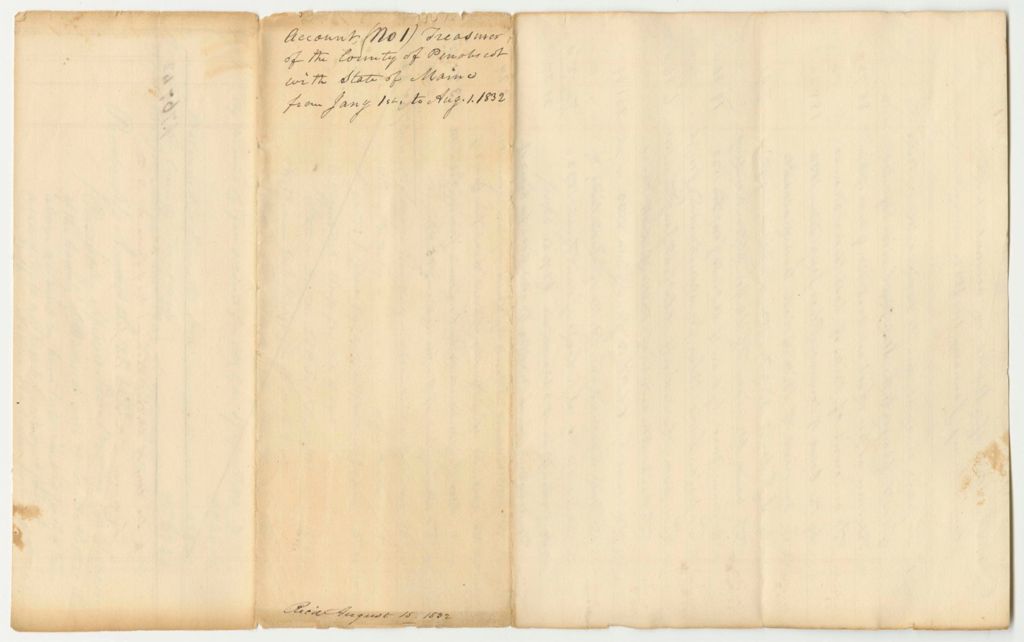 Account, (No 1) Treasurer
of the County of Penobscot
with State of Maine
from Jany 1st. to Aug. 1. 1832
Rec'd August 15 1832